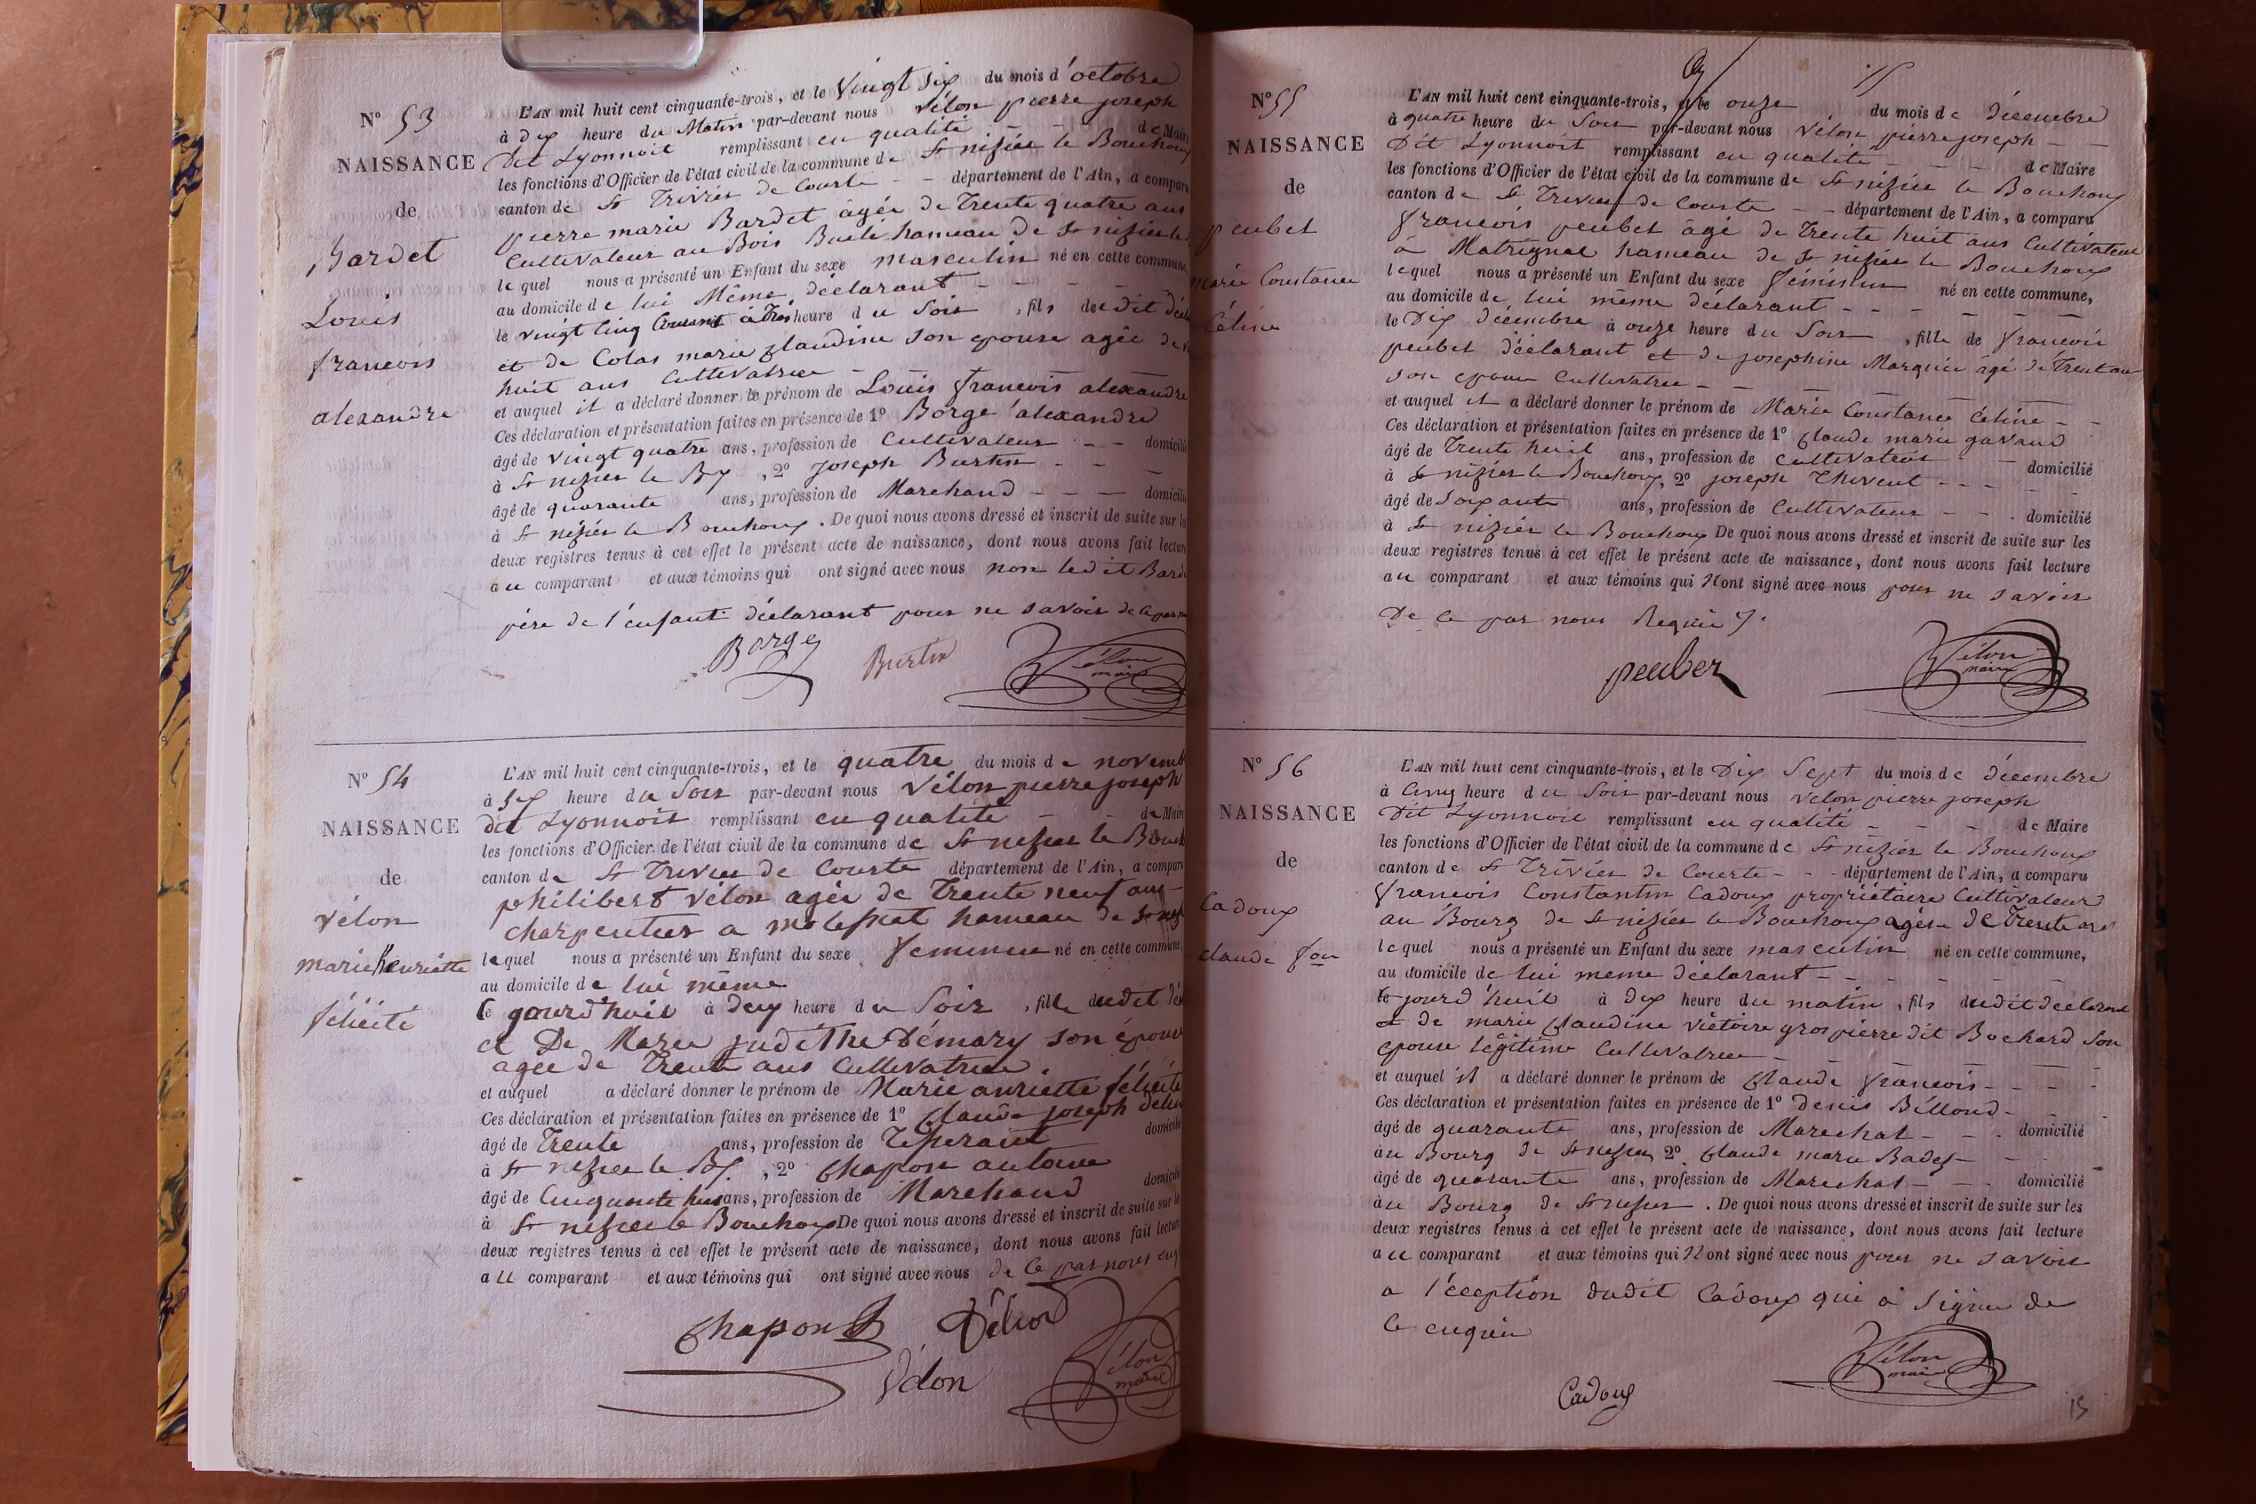 N° 53
NAISSANCE
de
Bardet
Louis
francois
alexandre
L'AN mil huit cent cinquante-trois, et le Vingt six du mois d'octobre
à Dix heure du Matin par-devant nous Vélon pierre joseph
Dit Lyonnois remplissant en qualité de Maire
les fonctions d'Officier de l'état civil de la commune de St nizier le Bouchoux
canton de St Trivier de Courte département de l'Ain, a comparu
pierre marie Bardet âgée de Trente quatre ans
Cultivateur au Bois hameau de St nizier le
lequel nous a présenté un Enfant du sexe masculin né en cette commune
au domicile de lui Même déclarant
le vingt cinq Courant à Trois heure du Soir, fils du dit
et de Colas marie flaudine son epouse agée de
huit ans Cultivatrice
et auquel il a déclaré donner le prénom de Louis francois alexandre
Ces déclaration et présentation faites en présence de 1° Borge alexandre
âgé de vingt quatre ans, profession de Cultivateur domicilié
à St nizier le Bx, 2° joseph Burtin
âgé de quarante ans, profession de Marchand domicilié
à St nizier le Bouchoux. De quoi nous avons dressé et inscrit de suite sur les
deux registres tenus à cet effet le présent acte de naissance, dont nous avons fait lecture
au comparant et aux témoins qui ont signé avec nous non ledit Bardet
père de l'enfant déclarant pour ne savoir de ce par nous
Borge
Burtin
Vélon
maire
N° 54
NAISSANCE
de
vélon
marie henriette
félicité
L'AN mil huit cent cinquante-trois, et le quatre du mois de novembre
à six heure du Soir par-devant nous Vélon pierre joseph
dit Lyonnois remplissant en qualité de Maire
les fonctions d'Officier de l'état civil de la commune de St nizier le Bouch
canton de St Trivier de Courte département de l'Ain, a comparu
philibert Vélon agée de Trente neuf ans
charpentier a hameau de St niz
lequel nous a présenté un Enfant du sexe feminin né en cette commune
au domicile de lui même
le jourd'huit à deux heure du Soir, fille dudit
et De Marie judithe Démary son épouse
agée de Trente ans Cultivatrice
et auquel a déclaré donner le prénom de Marie anriette félicité
Ces déclaration et présentation faites en présence de 1° Claude joseph
âgé de Trente ans, profession de Tisserant domicilié
à St nizier le Bx, 2° Chapon antoine
âgé de Cinquante huit ans, profession de Marchand domicilié
à St nizier le Bouchoux De quoi nous avons dressé et inscrit de suite sur les
deux registres tenus à cet effet le présent acte de naissance, dont nous avons fait lecture
au comparant et aux témoins qui ont signé avec nous de ce par nous
Chapon
Vélon
Vélon
maire
15
N° 55
NAISSANCE
de
peubet
marie Constance
Céline
L'AN mil huit cent cinquante-trois, et le onze du mois de décembre
à quatre heure du Soir par-devant nous Vélon pierre joseph
Dit Lyonnoit remplissant en qualité de Maire
les fonctions d'Officier de l'état civil de la commune de St nizier le Bouchoux
canton de St Trivier de Courte département de l'Ain, a comparu
francois peubet âgé de Trente huit ans Cultivateur
a Matrignat hameau de St nizier le Bouchoux
lequel nous a présenté un Enfant du sexe féminin né en cette commune,
au domicile de lui même déclarant
le Dix décembre à onze heure du Soir, fille de francois
peubet déclarant et de josephine Marguin âgé de Trent ans
son epouse Cultivatrice
et auquel il a déclaré donner le prénom de Marie Constance Céline
Ces déclaration et présentation faites en présence de 1° Claude marie gavand
âgé de Trente huit ans, profession de cultivateur domicilié
à St nizier le Bouchoux, 2° joseph Thevent
âgé de Soixante ans, profession de Cultivateur domicilié
à St nizier le Bouchoux De quoi nous avons dressé et inscrit de suite sur les
deux registres tenus à cet effet le présent acte de naissance, dont nous avons fait lecture
au comparant et aux témoins qui N'ont signé avec nous pour ne savoir
De ce par nous Requis
peuber
Vélon
maire
N° 56
NAISSANCE
de
Cadoux
claude fois
L'AN mil huit cent cinquante-trois, et le Dix Sept du mois de décembre
à Cinq heure du Soir par-devant nous Velon pierre joseph
Dit Lyonnoit remplissant en qualité de Maire
les fonctions d'Officier de l'état civil de la commune de St nizier le Bouchoux
canton de St Trivier de Courte département de l'Ain, a comparu
francois Constantin Cadoux propriétaire Cultivateur
au Bourg de St nizier le Bouchoux agée de Trente ans
lequel nous a présenté un Enfant du sexe masculin né en cette commune,
au domicile de lui meme déclarant
le jourd'huit à dix heure du matin, fils dudit declarant
et de marie flaudine victoire grospierre dit Bochard Son
epouse légitime Cultivatrice
et auquel il a déclaré donner le prénom de Claude francois
Ces déclaration et présentation faites en présence de 1° Denis Billoud
âgé de quarante ans, profession de Marechat domicilié
au Bourg de St nizier, 2° Claude marie Badez
âgé de quarante ans, profession de Marechat domicilié
au Bourg de St nizier. De quoi nous avons dressé et inscrit de suite sur les
deux registres tenus à cet effet le présent acte de naissance, dont nous avons fait lecture
au comparant et aux témoins qui N'ont signé avec nous pour ne savoir
a l'éception dudit Cadoux qui a signé de
ce enquis
Vélon
maire
Cadoux
15